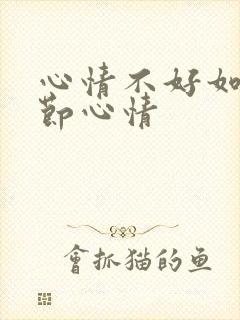 心情不好如
節心情
會抓猫的鱼